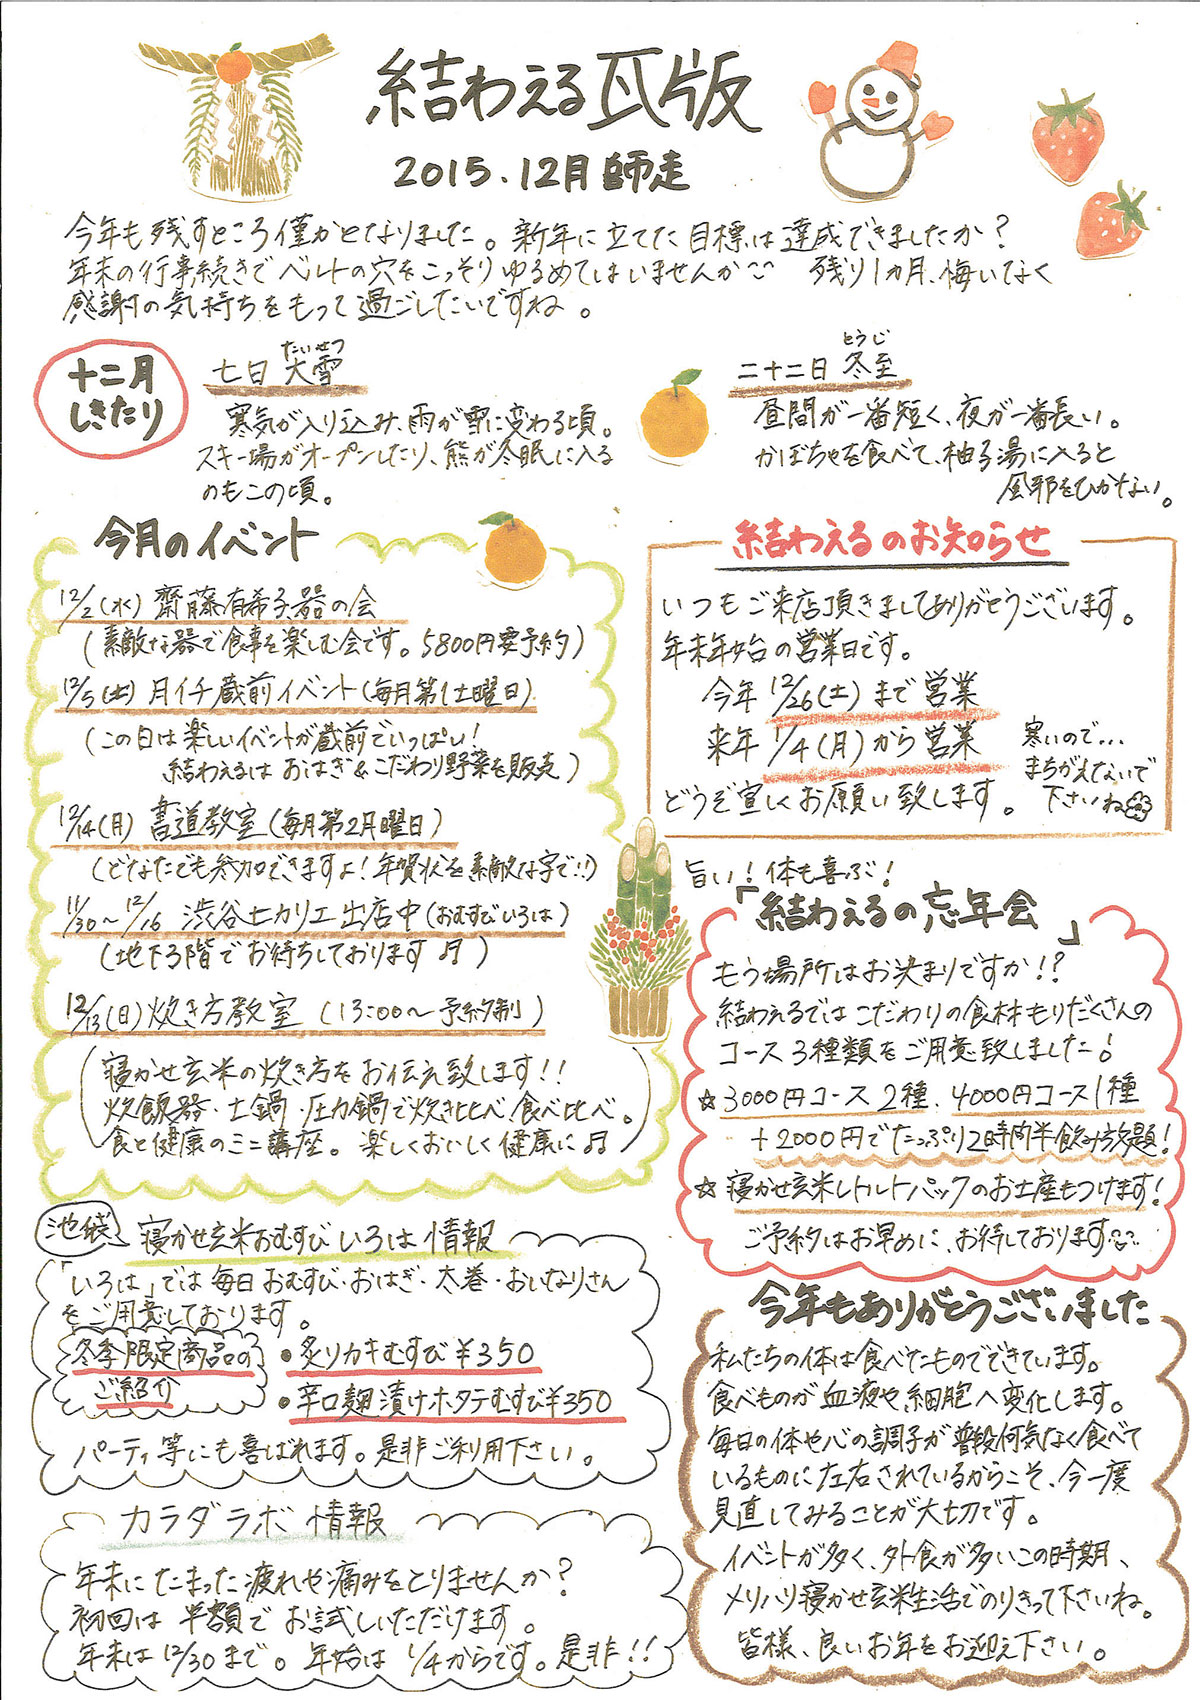 結わえる瓦版
2015.12月 師走
今年も残すところ僅かとなりました。新年に立てた目標は達成できましたか?
年末の行事続きでベルトの穴をこっそりゆるめてはいませんか 残り1カ月、悔いなく
感謝の気持ちをもって過ごしたいですね。
十二月
しきたり
たいせつ
七日 大雪
寒気が入り込み、雨が雪に変わる頃。
スキー場がオープンしたり、熊が冬眠に入る
のもこの頃。
とうじ
二十二日 冬至
昼間が一番短く、夜が一番長い。
かぼちゃを食べて、柚子湯に入ると
風邪をひかない。
今月のイベント
12/2(水) 齋藤有希子器の会
(素敵な器で食事を楽しむ会です。5800円要予約)
12/5(土) 月イチ蔵前イベント(毎月第1土曜日)
(この日は楽しいイベントが蔵前でいっぱい!
結わえるは おはぎ&こだわり野菜を販売)
12/14(月) 書道教室(毎月第2月曜日)
(どなたでも参加できますよ!年賀状を素敵な字で!!)
11/30〜12/16 渋谷ヒカリエ出店中(おむすびいろは)
(地下3階でお待ちしております♬)
12/13(日)炊き方教室 (13:00〜予約制)
(寝かせ玄米の炊き方をお伝え致します!!
炊飯器・土鍋・圧力鍋で炊き比べ、食べ比べ。
食と健康のミニ講座。楽しくおいしく健康に♬)
結わえるのお知らせ
いつもご来店頂きましてありがとうございます。
年末年始の営業日です。
今年 12/26(土)まで営業
来年 1/4(月)から営業
寒いので…
まちがえないで
下さいね
どうぞ宜しくお願い致します。
旨い!体も喜ぶ!
「結わえるの忘年会」
もう場所はお決まりですか!?
結わえるではこだわりの食材もりだくさんの
コース3種類をご用意致しました!
☆3000円コース2種、4000円コース1種
+2000円でたっぷり2時間半飲み放題!
☆寝かせ玄米レトルトパックのお土産もつけます!
ご予約はお早めに、お待しております
池袋 寝かせ玄米おむすび いろは 情報
「いろは」では毎日おむすび・おはぎ・太巻・おいなりさん
をご用意しております。
冬季限定商品の
ご紹介
・炙りカキむすび ¥350
・辛口麹漬けホタテむすび¥350
パーティ等にも喜ばれます。是非ご利用下さい。
カラダラボ 情報
年末にたまった疲れや痛みをとりませんか?
初回は半額でお試しいただけます。
年末は12/30まで。年始は1/4からです。是非!!
今年もありがとうございました
私たちの体は食べたものでできています。
食べものが血液や細胞へ変化します。
毎日の体や心の調子が普段何気なく食べて
いるものに左右されているからこそ、今一度
見直してみることが大切です。
イベントが多く、外食が多いこの時期、
メリハリ寝かせ玄米生活でのりきって下さいね。
皆様、良いお年をお迎え下さい。